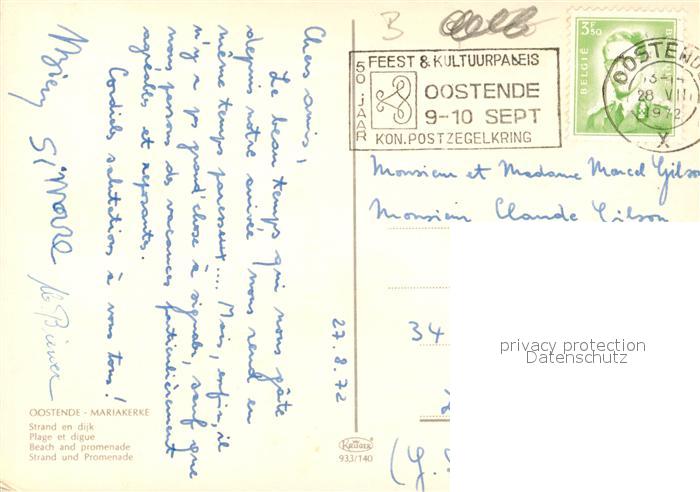 Chers amis,
Le beau temps qui nous gâte
depuis notre arrivée nous rend en
même temps paresseux.... Mais, enfin, il
n'y a pas grand'chose à signaler, sauf que
nous passons des vacances particulièrement
agréables et reposantes.
Cordiales salutations à vous tous!
Simone
OOSTENDE - MARIAKERKE
Strand en dijk
Plage et digue
Beach and promenade
Strand und Promenade
B
50 JAAR
FEEST & KULTUURPALEIS
OOSTENDE
9-10 SEPT
KON. POSTZEGELKRING
3F50
BELGIË
OOSTENDE
28 VIII
1972
X
Monsieur et Madame Marcel Gilson
Monsieur Claude Gilson
34
27.8.72
KRÜGER
933/140
privacy protection
Datenschutz